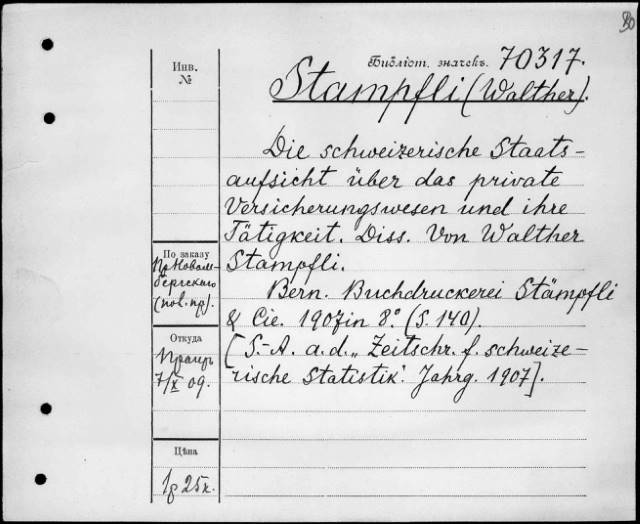 Инв.
№
Библіот. значекъ. 70317.
Stampfli (Walther).
Die schweizerische Staats-
aufsicht über das private
Versicherungswesen und ihre
Tätigkeit. Diss. Von Walther
Stampfli.
Bern. Buchdruckerei Stämpfli
& Cie. 1907 in 8º (S. 140).
[S.-A. a. d. „Zeitschr. f. schweize-
rische Statistik". Jahrg. 1907].
По заказу
Пр. Новом-
бергскаго
(нов. пр).
Откуда
7/X 09.
Цѣна
1р 25к.